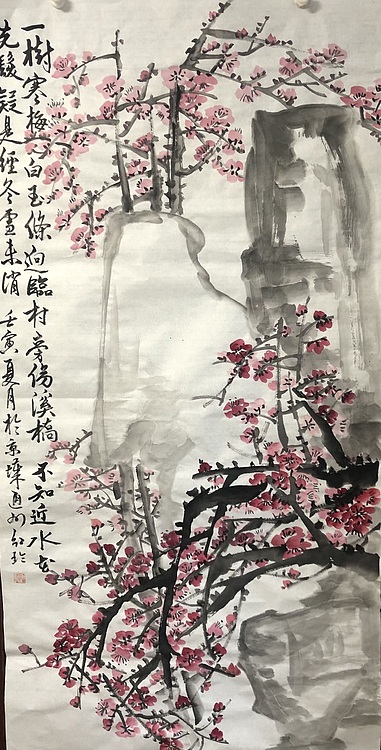 一樹寒梅白玉條迥臨村旁傍溪橋不知近水花
先發疑是經冬雪未消 壬寅夏月於京華通州